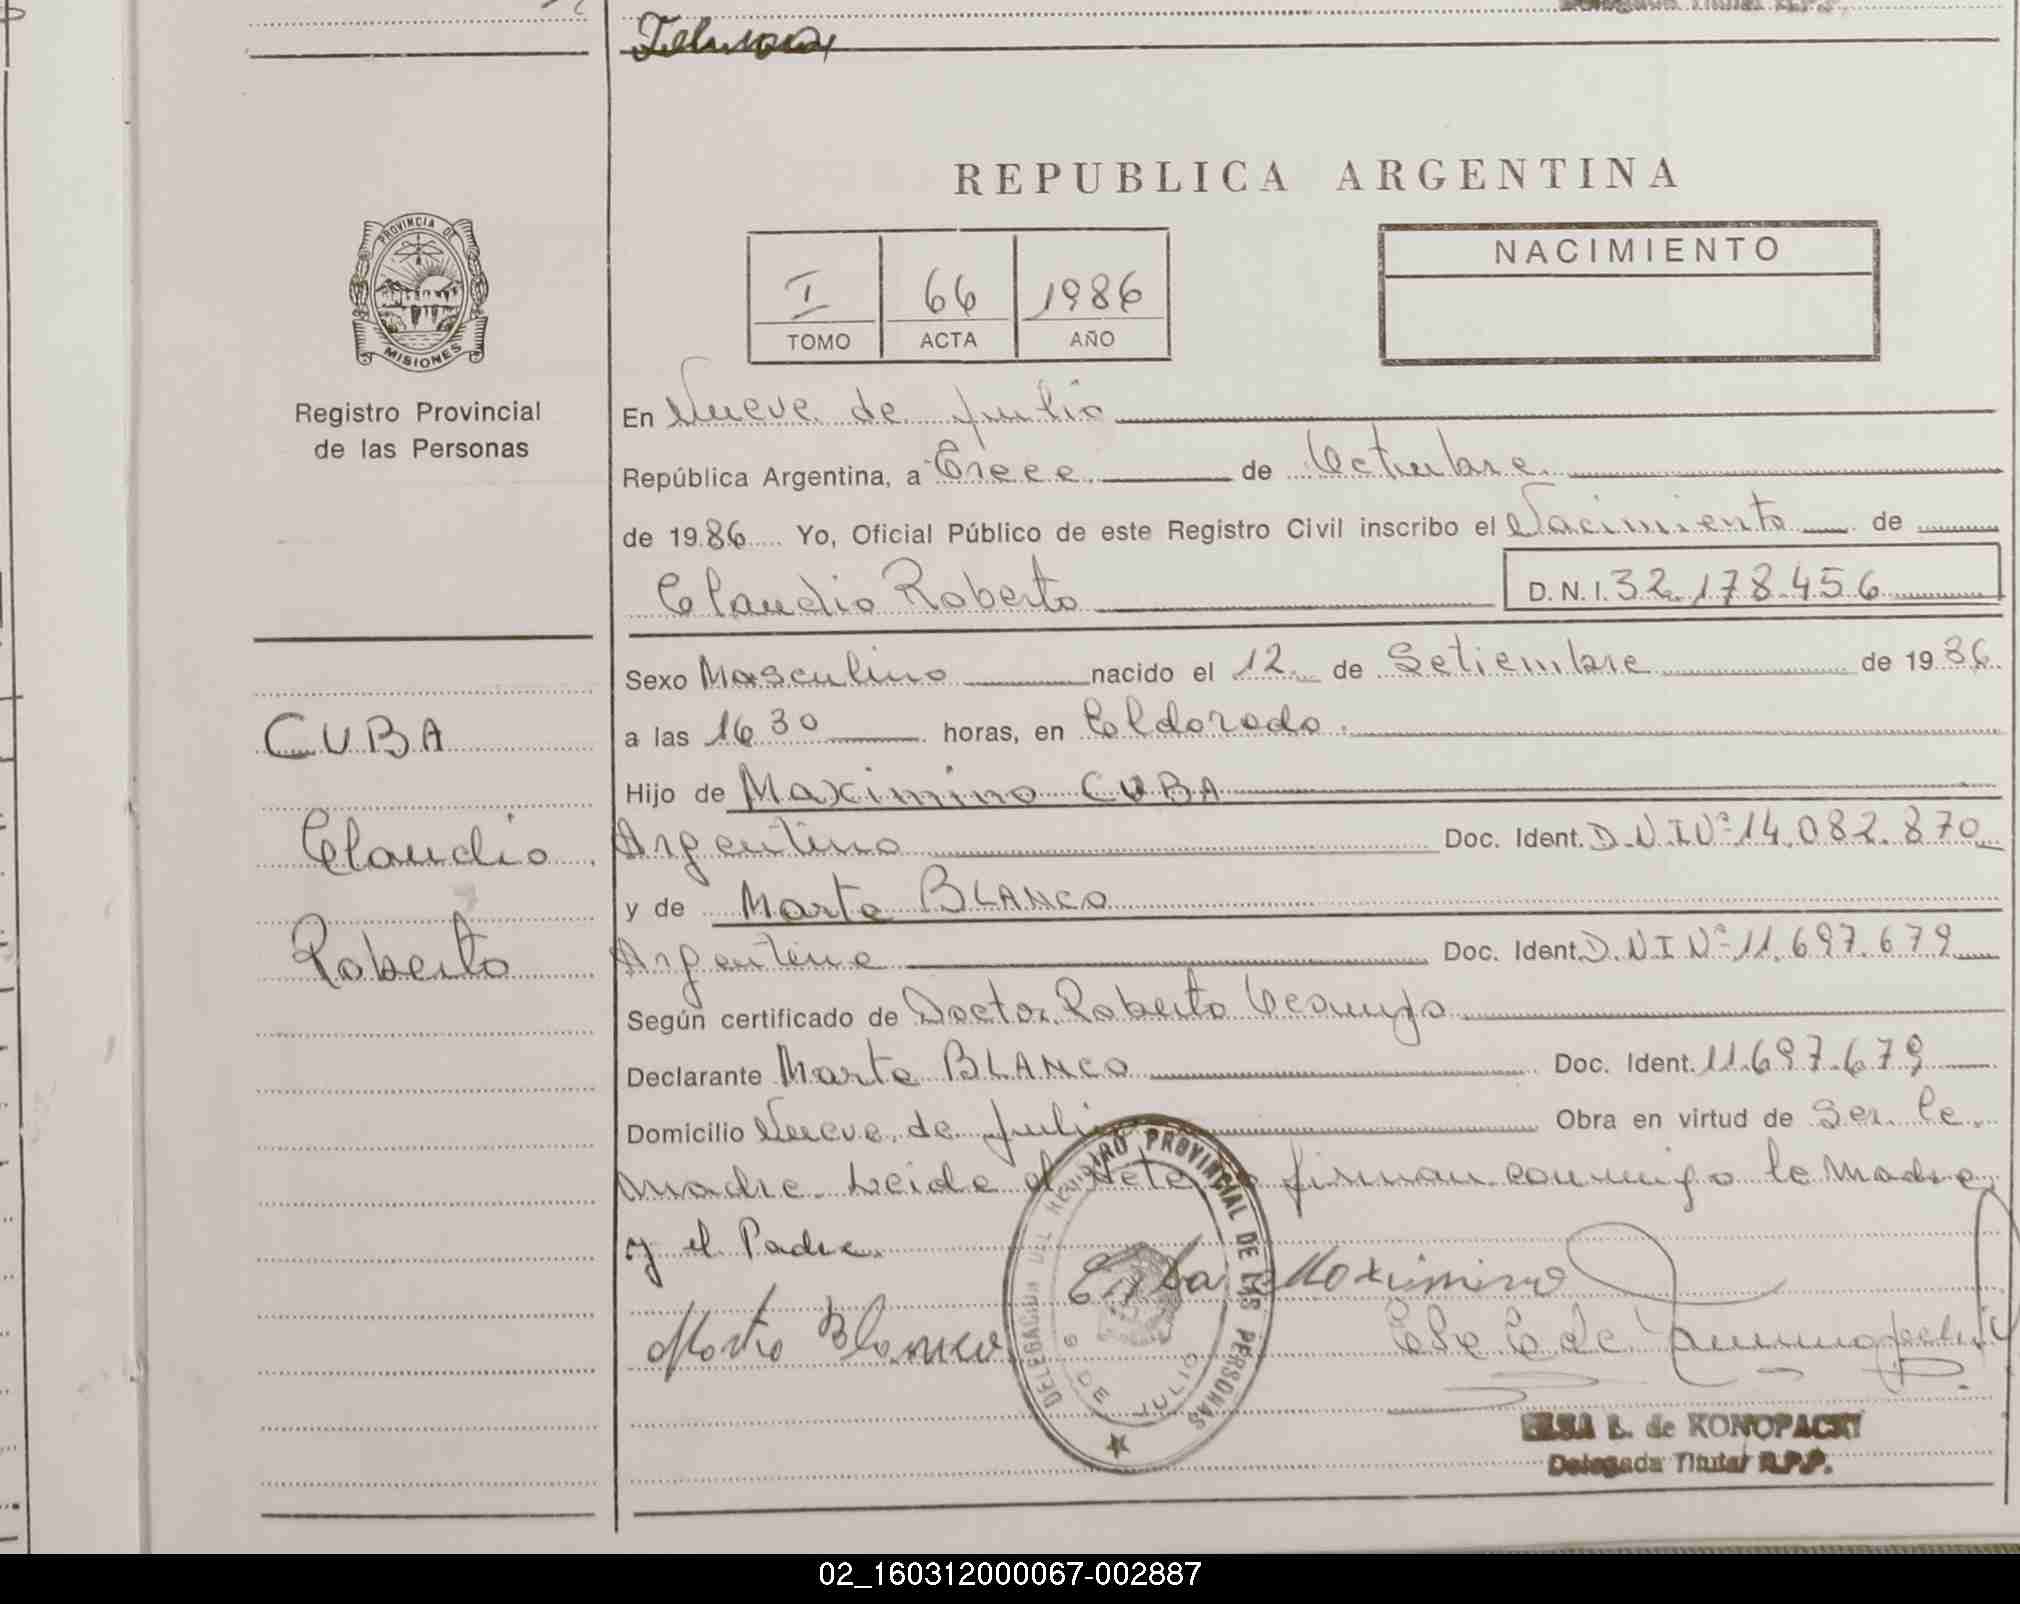 REPUBLICA ARGENTINA
PROVINCIA DE
MISIONES
Registro Provincial
de las Personas
I 66 1986
TOMO ACTA AÑO
NACIMIENTO
En Nueve de Julio
República Argentina, a Trece de Octubre
de 1986 Yo, Oficial Público de este Registro Civil inscribo el Nacimiento de
Claudio Roberto D.N.I. 32.178.456
Sexo Masculino nacido el 12 de Setiembre de 1986
a las 16 30 horas, en Eldorado
CUBA
Claudio
Roberto
Hijo de Maximino CUBA
Argentino Doc. Ident. D.N.I Nº 14.082.870
y de Marta BLANCO
Argentina Doc. Ident. D.N.I Nº 11.697.679
Según certificado de Doctor Roberto Ocampo
Declarante Marta BLANCO Doc. Ident. 11.697.679
Domicilio Nueve de Julio Obra en virtud de Ser la
madre. Leida el Acta firman conmigo la Madre
y el Padre.
Cuba Maximino
Marta Blanco
DELEGACION DEL REGISTRO PROVINCIAL DE LAS PERSONAS
9 DE JULIO
ELSA E. de KONOPACKI
Delegada Titular R.P.P.
02_160312000067-002887